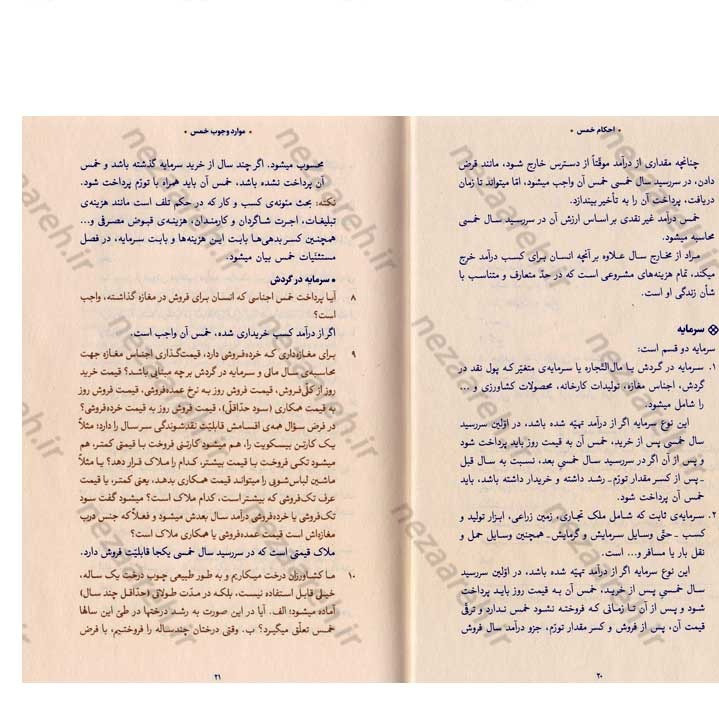 • احکام خمس •
چنانچه مقداری از درآمد موقّتاً از دسترس خارج شود، مانند قرض
دادن، در سررسید سال خمسی خمس آن واجب میشود، امّا میتواند تا زمان
دریافت، پرداخت آن را به تأخیر بیندازد.
خمس درآمد غیر نقدی بر اساس ارزش آن در سررسید سال خمسی
محاسبه میشود.
مراد از مخارج سال علاوه بر آنچه انسان برای کسب درآمد خرج
میکند، تمام هزینه‌های مشروعی است که در حدّ متعارف و متناسب با
شأن زندگی او است.
سرمایه
سرمایه دو قسم است:
۱. سرمایه در گردش یا مال‌التّجاره یا سرمایه‌ی متغیّر که پول نقد در
گردش، اجناس مغازه، تولیدات کارخانه، محصولات کشاورزی و ...
را شامل میشود.
این نوع سرمایه اگر از درآمد تهیّه شده باشد، در اوّلین سررسید
سال خمسی پس از خرید، خمس آن به قیمت روز باید پرداخت شود
و پس از آن اگر در سررسید سال خمسی بعد، نسبت به سال قبل
ـ پس از کسر مقدار تورّم ـ رشد داشته و خریدار داشته باشد، باید
خمس آن پرداخت شود.
۲. سرمایه‌ی ثابت که شامل ملک تجاری، زمین زراعی، ابزار تولید و
کسب ـ حتّی وسایل سرمایش و گرمایش ـ همچنین وسایل حمل و
نقل بار یا مسافر و... است.
این نوع سرمایه اگر از درآمد تهیّه شده باشد، در اوّلین سررسید
سال خمسی پس از خرید، خمس آن به قیمت روز باید پرداخت
شود و پس از آن تا زمانی که فروخته نشود خمس ندارد و ترقّی
قیمت آن، پس از فروش و کسر مقدار تورّم، جزو درآمد سال فروش
۲۰
• موارد وجوب خمس •
محسوب میشود. اگر چند سال از خرید سرمایه گذشته باشد و خمس
آن پرداخت نشده باشد، خمس آن باید همراه با تورّم پرداخت شود.
نکته: بحث مئونه‌ی کسب و کار که در حکم تلف است مانند هزینه‌ی
تبلیغات، اجرت شاگردان و کارمندان، هزینه‌ی قبوض مصرفی و...
همچنین کسر بدهی‌ها بابت این هزینه‌ها و بابت سرمایه، در فصل
مستثنیات خمس بیان میشود.
• سرمایه در گردش
۸ آیا پرداخت خمس اجناسی که انسان برای فروش در مغازه گذاشته، واجب
است؟
اگر از درآمد کسب خریداری شده، خمس آن واجب است.
۹ برای مغازه‌داری که خرده‌فروشی دارد، قیمت‌گذاری اجناس مغازه جهت
محاسبه‌ی سال مالی و سرمایه در گردش بر چه مبنایی باشد؟ قیمت خرید
روز از کلّی‌فروش، قیمت فروش روز به نرخ عمده‌فروشی، قیمت فروش روز
به قیمت همکاری (سود حدّاقلّی)، قیمت فروش روز به قیمت خرده‌فروشی؟
در فرض سؤال همه‌ی اقسامش قابلیّت نقدشوندگی سر سال را دارد؛ مثلاً
یک کارتن بیسکویت را، هم میشود کارتنی فروخت با قیمتی کمتر، هم
میشود تکی فروخت با قیمت بیشتر، کدام را ملاک قرار دهد؟ یا مثلاً
ماشین لباس‌شویی را میتواند قیمت همکاری بدهد، یعنی کمتر، یا قیمت
عرف تک‌فروشی که بیشتر است، کدام ملاک است؟ میشود گفت سود
تک‌فروشی یا خرده‌فروشی درآمد سال بعدش میشود و فعلاً که جنس درب
مغازه‌اش است قیمت عمده‌فروشی یا همکاری ملاک است؟
ملاک قیمتی است که در سررسید سال خمسی یکجا قابلیّت فروش دارد.
۱۰ ما کشاورزان درخت میکاریم و به طور طبیعی چوب درخت یک ساله،
خیلی قابل استفاده نیست، بلکه در مدّت طولانی (حدّاقل چند سال)
آماده میشود؛ الف. آیا در این صورت به رشد درختها در طیّ این سالها
خمس تعلّق میگیرد؟ ب. وقتی درختان چندساله را فروختیم، با فرض
۲۱
nezaareh.ir